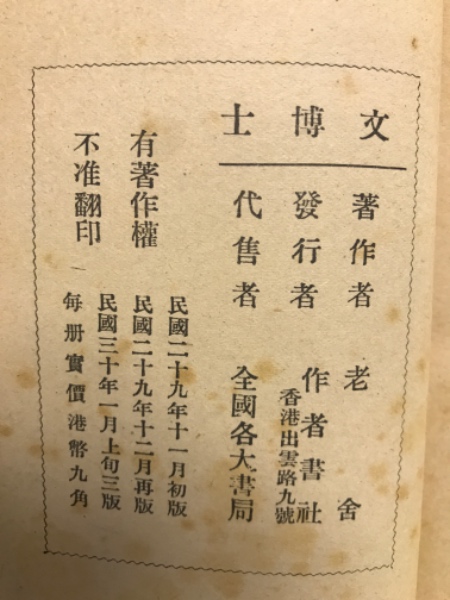 文博士
著作者 老舍
發行者 作者書社
香港出雲路九號
代售者 全國各大書局
有著作權
不准翻印
民國二十九年十一月初版
民國二十九年十二月再版
民國三十年一月上旬三版
每册實價港幣九角